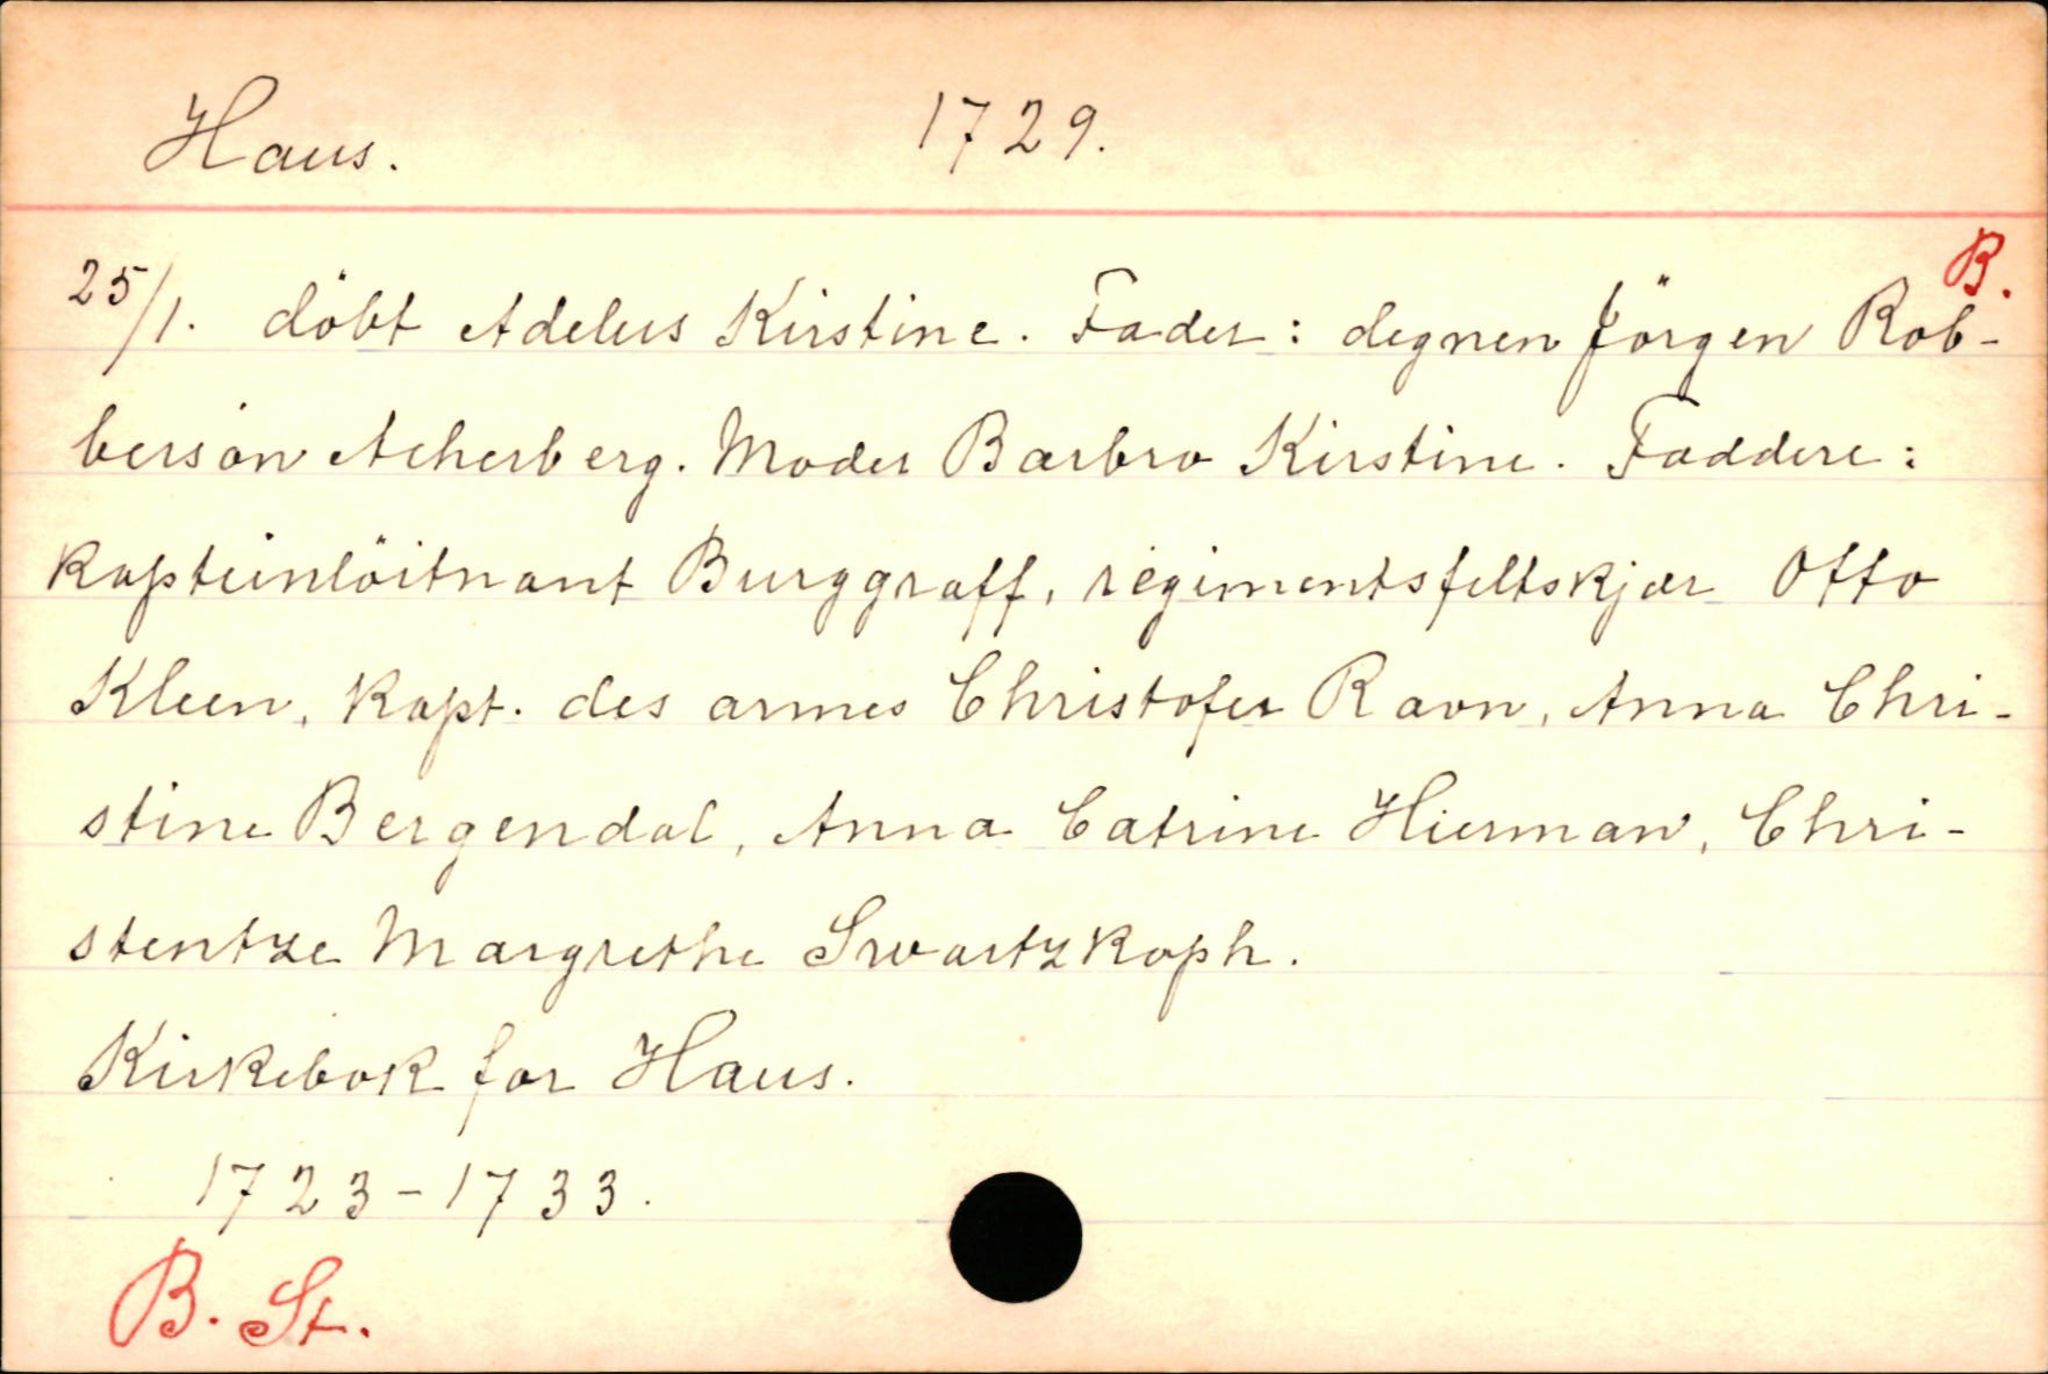 Haus. 1729.
B.
25/1. döbt Adelus Kirstine. Fader: degnen Jörgen Rob-
berson Acherberg. Moder Barbro Kirstine. Faddere:
kapteinlöitnant Burggraff, regimentsfeltskjær Otto
Kleen, kapt. des armes Christofer Ravn, Anna Chri-
stine Bergendal, Anna Catrine Hierman, Chri-
stentze Margrethe Swartzkoph.
Kirkebok for Haus.
1723-1733.
B. St.